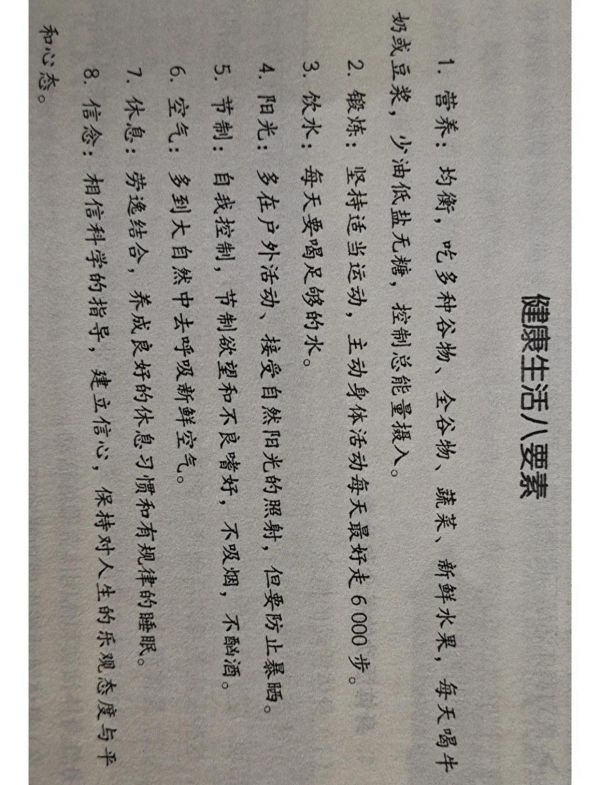 健康生活八要素
1. 营养：均衡，吃多种谷物、全谷物、蔬菜、新鲜水果，每天喝牛
奶或豆浆，少油低盐无糖，控制总能量摄入。
2. 锻炼：坚持适当运动，主动身体活动每天最好走6 000步。
3. 饮水：每天要喝足够的水。
4. 阳光：多在户外活动、接受自然阳光的照射，但要防止暴晒。
5. 节制：自我控制，节制欲望和不良嗜好，不吸烟，不酗酒。
6. 空气：多到大自然中去呼吸新鲜空气。
7. 休息：劳逸结合，养成良好的休息习惯和有规律的睡眠。
8. 信念：相信科学的指导，建立信心，保持对人生的乐观态度与平
和心态。